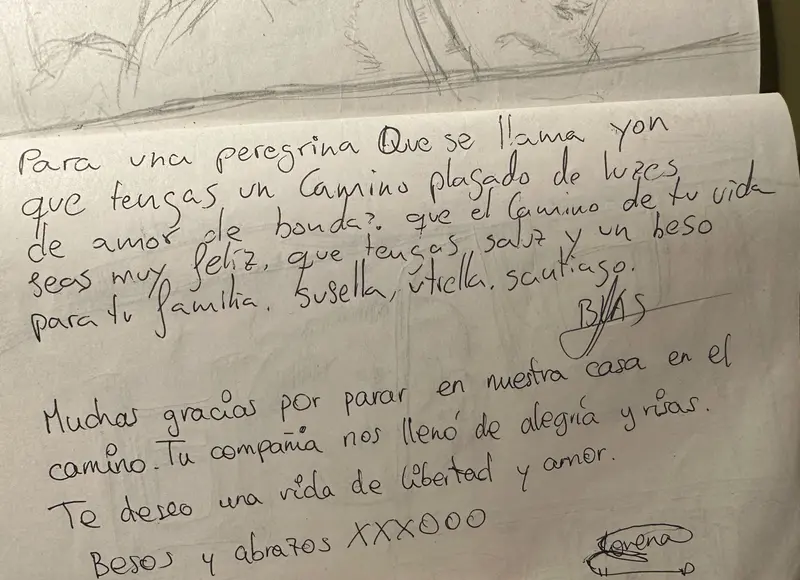 Para una peregrina Que se llama yon
que tengas un Camino plagado de luzes
de amor de bonda?. que el Camino de tu vida
seas muy feliz, que tengas saluz y un beso
para tu familia. Susella, útrella. santiago.
BLAS
Muchas gracias por parar en nuestra casa en el
camino. Tu compañia nos llenó de alegría y risas.
Te deseo una vida de libertad y amor.
Besos y abrazos XXXOOO
Lorena